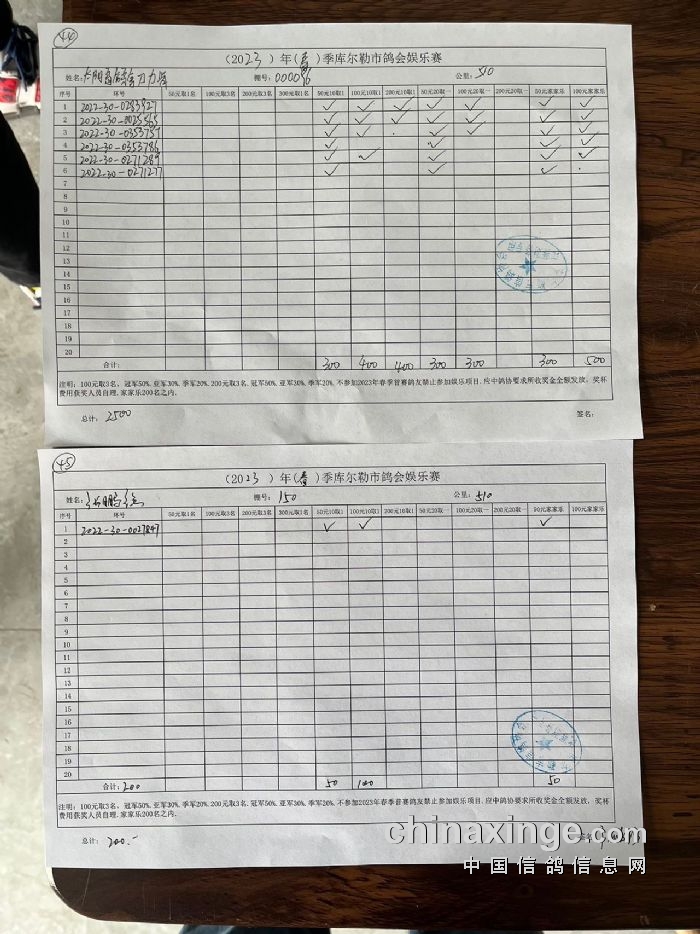 44
(2023)年(春)季库尔勒市鸽会娱乐赛
姓名: 棚号:000086 公里:510
序号 环号 50元取1名 100元取3名 200元取3名 300元取1名 50元10取1 100元10取1 200元10取1 50元20取一 100元20取一 200元20取一 50元家家乐 100元家家乐
1 2022-30-0283827 ✓ ✓ ✓ ✓ ✓ ✓ ✓
2 2022-30-0025565 ✓ ✓ ✓ ✓ ✓ ✓ ✓
3 2022-30-0353757 ✓ ✓ ✓ ✓ ✓ ✓
4 2022-30-0353786 ✓ ✓ ✓ ✓
5 2022-30-0271289 ✓ ✓ ✓ ✓ ✓
6 2022-30-0271277 ✓ ✓ ✓
7
8
9
10
11
12
13
14
15
16
17
18
19
20
合计: 300 400 400 300 300 300 500
注明:100元取3名,冠军50%,亚军30%,季军20%,200元取3名,冠军50%,亚军30%,季军20%,不参加2023年春季首赛鸽友禁止参加娱乐项目,应中鸽协要求所收奖金全额发放,奖杯
费用获奖人员自理,家家乐200名之内.
总计: 2500 签名:
45
(2023)年(春)季库尔勒市鸽会娱乐赛
姓名: 棚号:150 公里:510
序号 环号 50元取1名 100元取3名 200元取3名 300元取1名 50元10取1 100元10取1 200元10取1 50元20取一 100元20取一 200元20取一 50元家家乐 100元家家乐
1 2022-30-0027847 ✓ ✓ ✓
2
3
4
5
6
7
8
9
10
11
12
13
14
15
16
17
18
19
20
合计:200 50 100 50
注明:100元取3名,冠军50%,亚军30%,季军20%,200元取3名,冠军50%,亚军30%,季军20%,不参加2023年春季首赛鸽友禁止参加娱乐项目,应中鸽协要求所收奖金全额发放,奖杯
费用获奖人员自理,家家乐200名之内.
总计: 200.-
chinaxinge.com
中国信鸽信息网